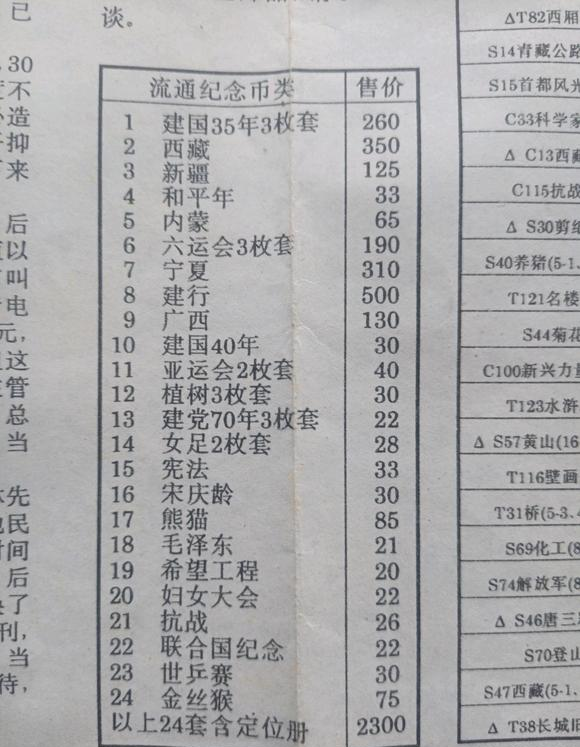 已
30
不
造
抑
来
后
以
叫
电
元，
这
管
总
当
先
民
间
后
了
刊，
当
待，
谈。
流通纪念币类 售价
1 建国35年3枚套 260
2 西藏 350
3 新疆 125
4 和平年 33
5 内蒙 65
6 六运会3枚套 190
7 宁夏 310
8 建行 500
9 广西 130
10 建国40年 30
11 亚运会2枚套 40
12 植树3枚套 30
13 建党70年3枚套 22
14 女足2枚套 28
15 宪法 33
16 宋庆龄 30
17 熊猫 85
18 毛泽东 21
19 希望工程 20
20 妇女大会 22
21 抗战 26
22 联合国纪念 22
23 世乒赛 30
24 金丝猴 75
以上24套含定位册 2300
ΔT82西厢
S14青藏公路
S15首都风光
C33科学家
Δ C13西藏
C115抗战
Δ S30剪纸
S40养猪(5-1、
T121名楼
S44菊花
C100新兴力量
T123水浒
Δ S57黄山(16
T116壁画
T31桥(5-3、4
S69化工(8
S74解放军(8
Δ S46唐三
S70登山
S47西藏(5-1、
Δ T38长城旧